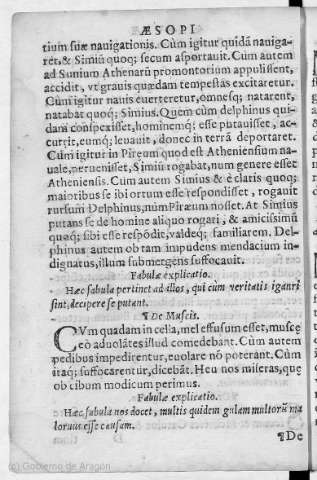 ÆSOPI
tium suæ nauigationis. Cùm igitur quidã nauiga-
rét, & Simiũ quoq; secum asportauit. Cùm autem
ad Sunium Athenarũ promontorium appulissent,
accidit, vt grauis quædam tempestas excitaretur.
Cùm igitur nauis euerteretur, omnesq; natarent,
natabat quoq; Simius. Quem cùm delphinus qui-
dam conspexisset, hominemq; esse putauisset, ac-
currit, eumq; leuauit, donec in terrã deportaret.
Cùm igitur in Pireum quod est Atheniensium na-
uale, peruenisset, Simiũ rogabat, num genere esset
Atheniensis. Cùm autem Simius & è claris quoq;
maioribus se ibi ortum esse respondisset, rogauit
rursum Delphinus, num Piræum nosset. At Simius
putans se de homine aliquo rogari, & amicissimũ
quoq; sibi esse respõdit, valdeq; familiarem. Del-
phinus autem ob tam impudens mendacium in-
dignatus, illum submergens suffocauit.
Fabulæ explicatio.
Hæc fabula pertinet ad illos, qui cum veritatis ignari
sint, decipere se putant.
¶ De Muscis.
CVm quadam in cella, mel effusum esset, muscę
eò aduolátes illud comedebant. Cùm autem
pedibus impedirentur, euolare nõ poterant. Cùm
itaq; suffocarentur, dicebãt. Heu nos miseras, quę
ob cibum modicum perimus.
Fabulæ explicatio.
Hæc fabula nos docet, multis quidem gulam multorũ ma
lorum esse causam.
¶De
(c) Gobierno de Aragón